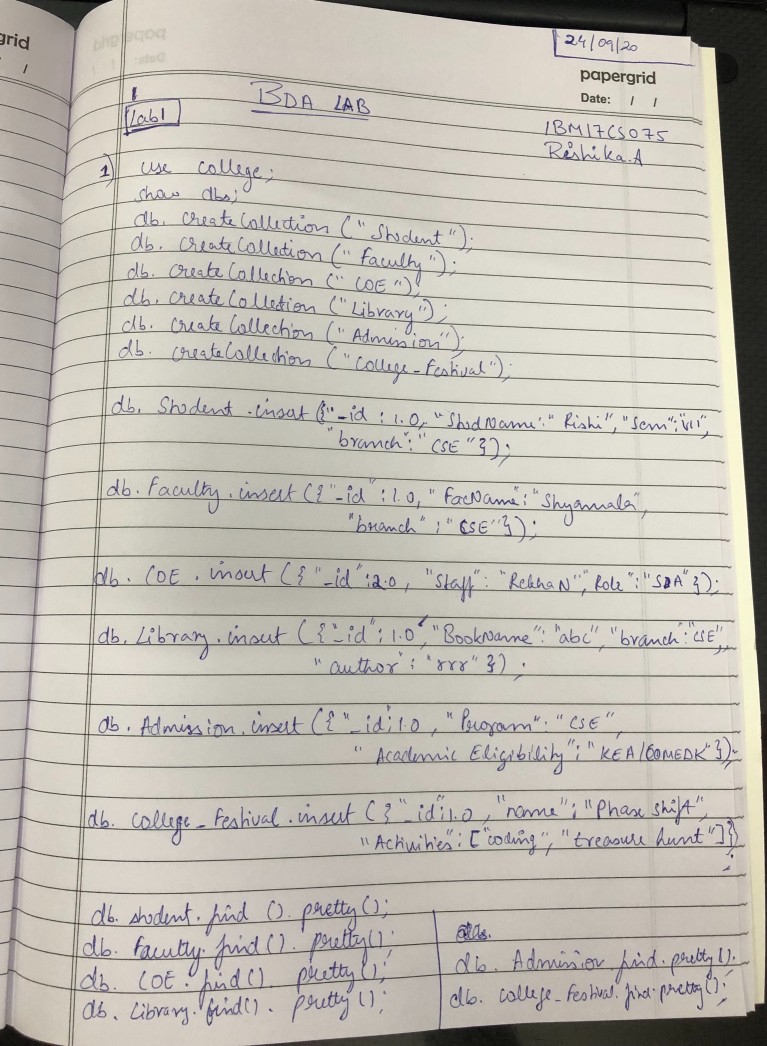 grid
/
24/09/20
papergrid
Date: / /
BDA LAB
Lab1
1BM17CS075
Rishika.A
1) use college;
show dbs;
db. createCollection ("Student");
db. createCollection ("Faculty");
db. createCollection ("COE");
db. createCollection ("Library");
db. createCollection ("Admission");
db. createCollection ("College_Festival");
db. Student .insert ({"_id : 1.0, "StudName":" Rishi", "Sem":"VII",
"branch":" CSE "});
db. Faculty. insert ({"_id" : 1.0, "FacName": "Shyamala",
"branch" : "CSE"});
db. COE . insert ({ "_id" : 2.0, "Staff": "Rekha N", "Role": "SDA"});
db. Library. insert ({"_id": 1.0, "BookName": "abc", "branch":"CSE",
"author": "rrr" }) ;
db. Admission. insert ({"_id:1.0 , "Program": "CSE",
"Academic Eligibility": "KEA/COMEDK"});
db. College_Festival .insert ({"_id:1.0 , "name": "Phase Shift",
"Activities": ["coding", "treasure hunt"]})
;
db. student. find (). pretty();
db. Faculty. find(). pretty();
db. COE. find(). pretty();
db. Library. find(). pretty();
db. Admission. find. pretty();
db. College_Festival. find. pretty();